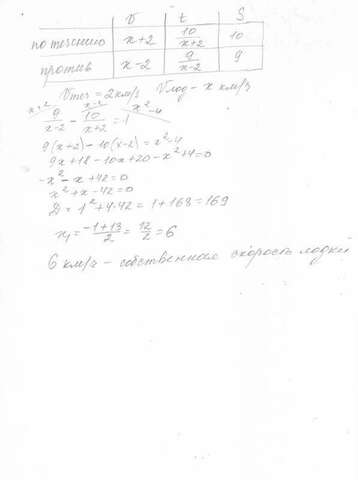 v t S
по течению x+2 10/(x+2) 10
против x-2 9/(x-2) 9
Vтеч = 2 км/ч Vлод - x км/ч
x+2 x-2 x²-4
9/(x-2) - 10/(x+2) = 1
9(x+2) - 10(x-2) = x²-4
9x+18-10x+20-x²+4=0
-x²-x+42=0
x²+x-42=0
D = 1²+4·42 = 1+168=169
x₁ = (-1+13)/2 = 12/2 = 6
6 км/ч - собственная скорость лодки